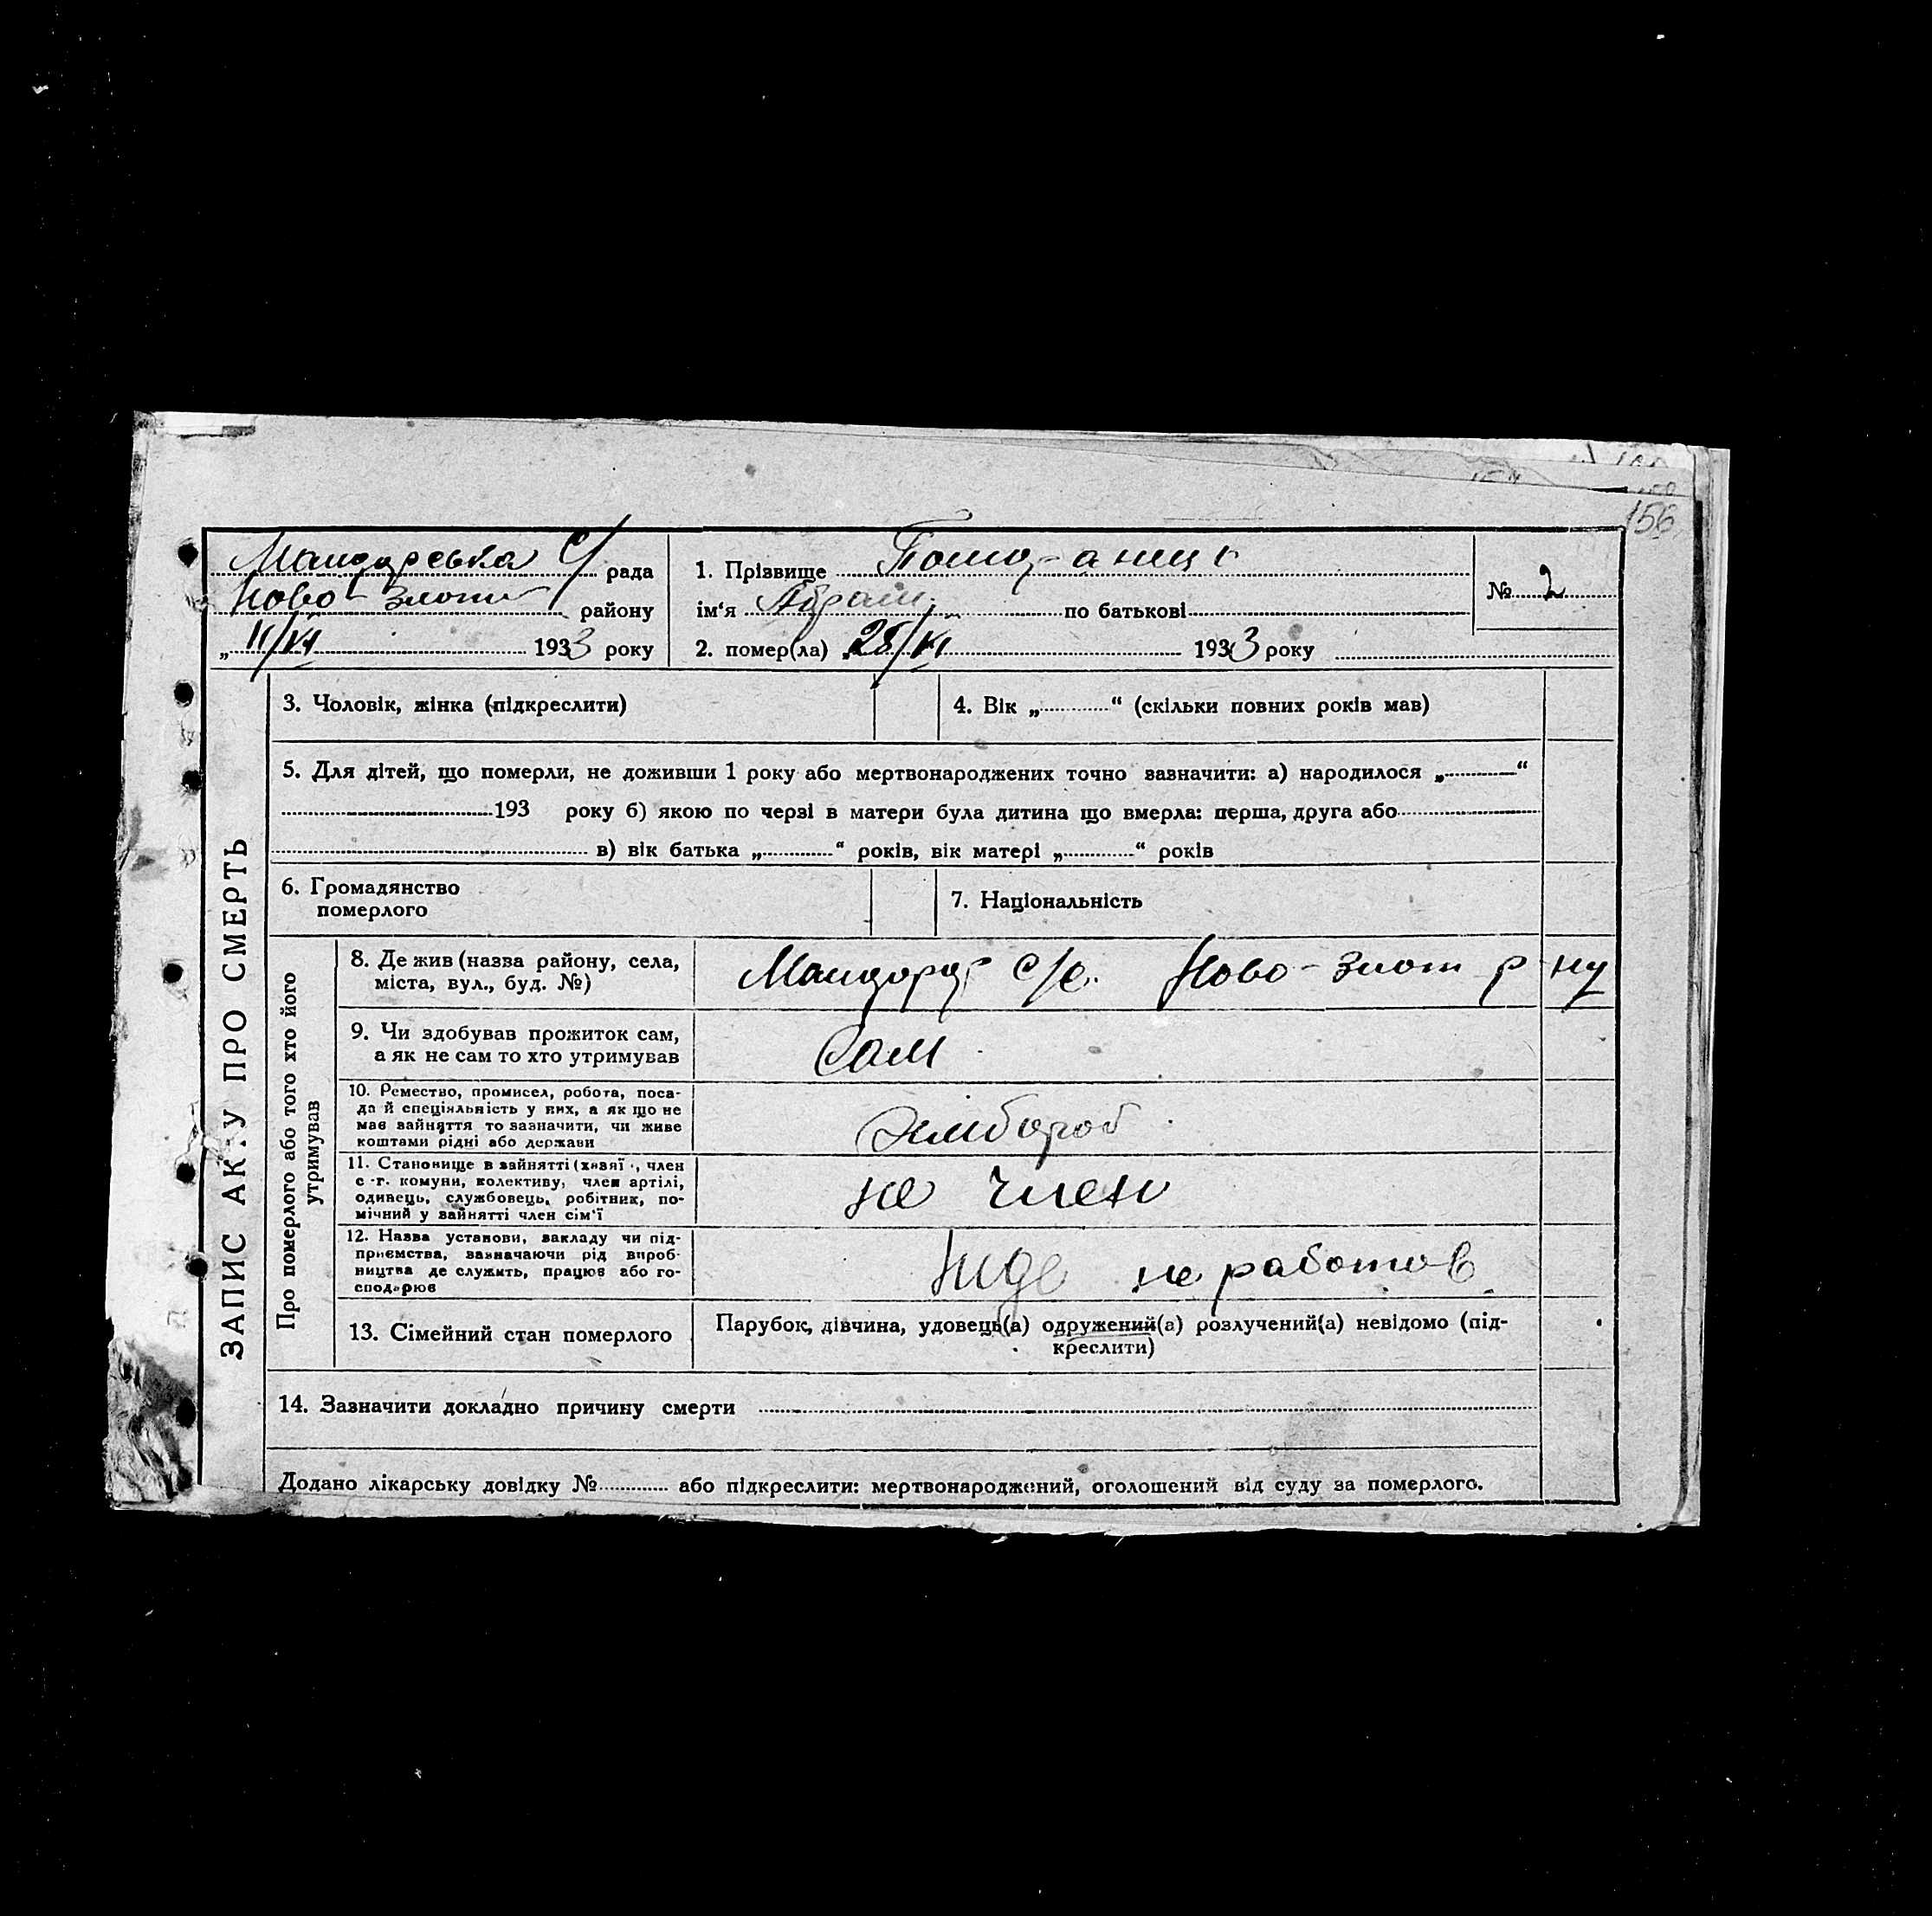 156
с/рада
Ново-Злот района
району
"11/VI 1933 року
1. Прізвище
№ 2
ім'я Абрам по батькові
2. помер(ла) „28/VI 1933 року
ЗАПИС АКТУ ПРО СМЕРТЬ
3. Чоловік, жінка (підкреслити)
4. Вік „ “ (скільки повних років мав)
5. Для дітей, що померли, не доживши 1 року або мертвонароджених точно зазначити: а) народилося „ “
193 року б) якою по черзі в матери була дитина що вмерла: перша, друга або
в) вік батька „ “ років, вік матері „ “ років
6. Громадянство
померлого
7. Національність
Про померлого або того хто його
утримував
8. Де жив (назва району, села,
міста, вул., буд. №)
с/с. Ново-Злот р-ну
9. Чи здобував прожиток сам,
а як не сам то хто утримував
Сам
10. Ремество, промисел, робота, поса-
да й спеціяльність у них, а як що не
має зайняття то зазначити, чи живе
коштами рідні або держави
11. Становище в зайнятті (хазяї , член
с-г. комуни, колективу, член артілі,
одинець, службовець, робітник, по-
мічний у зайнятті член сім'ї
не член
12. Назва установи, закладу чи під-
приємства, зазначаючи рід вироб-
ництва де служить, працює або го-
сподарює
Ниде не работав
13. Сімейний стан померлого
Парубок, дівчина, удовець(а) одружений(а) розлучений(а) невідомо (під-
креслити)
14. Зазначити докладно причину смерти
Додано лікарську довідку № або підкреслити: мертвонароджений, оголошений від суду за померлого.